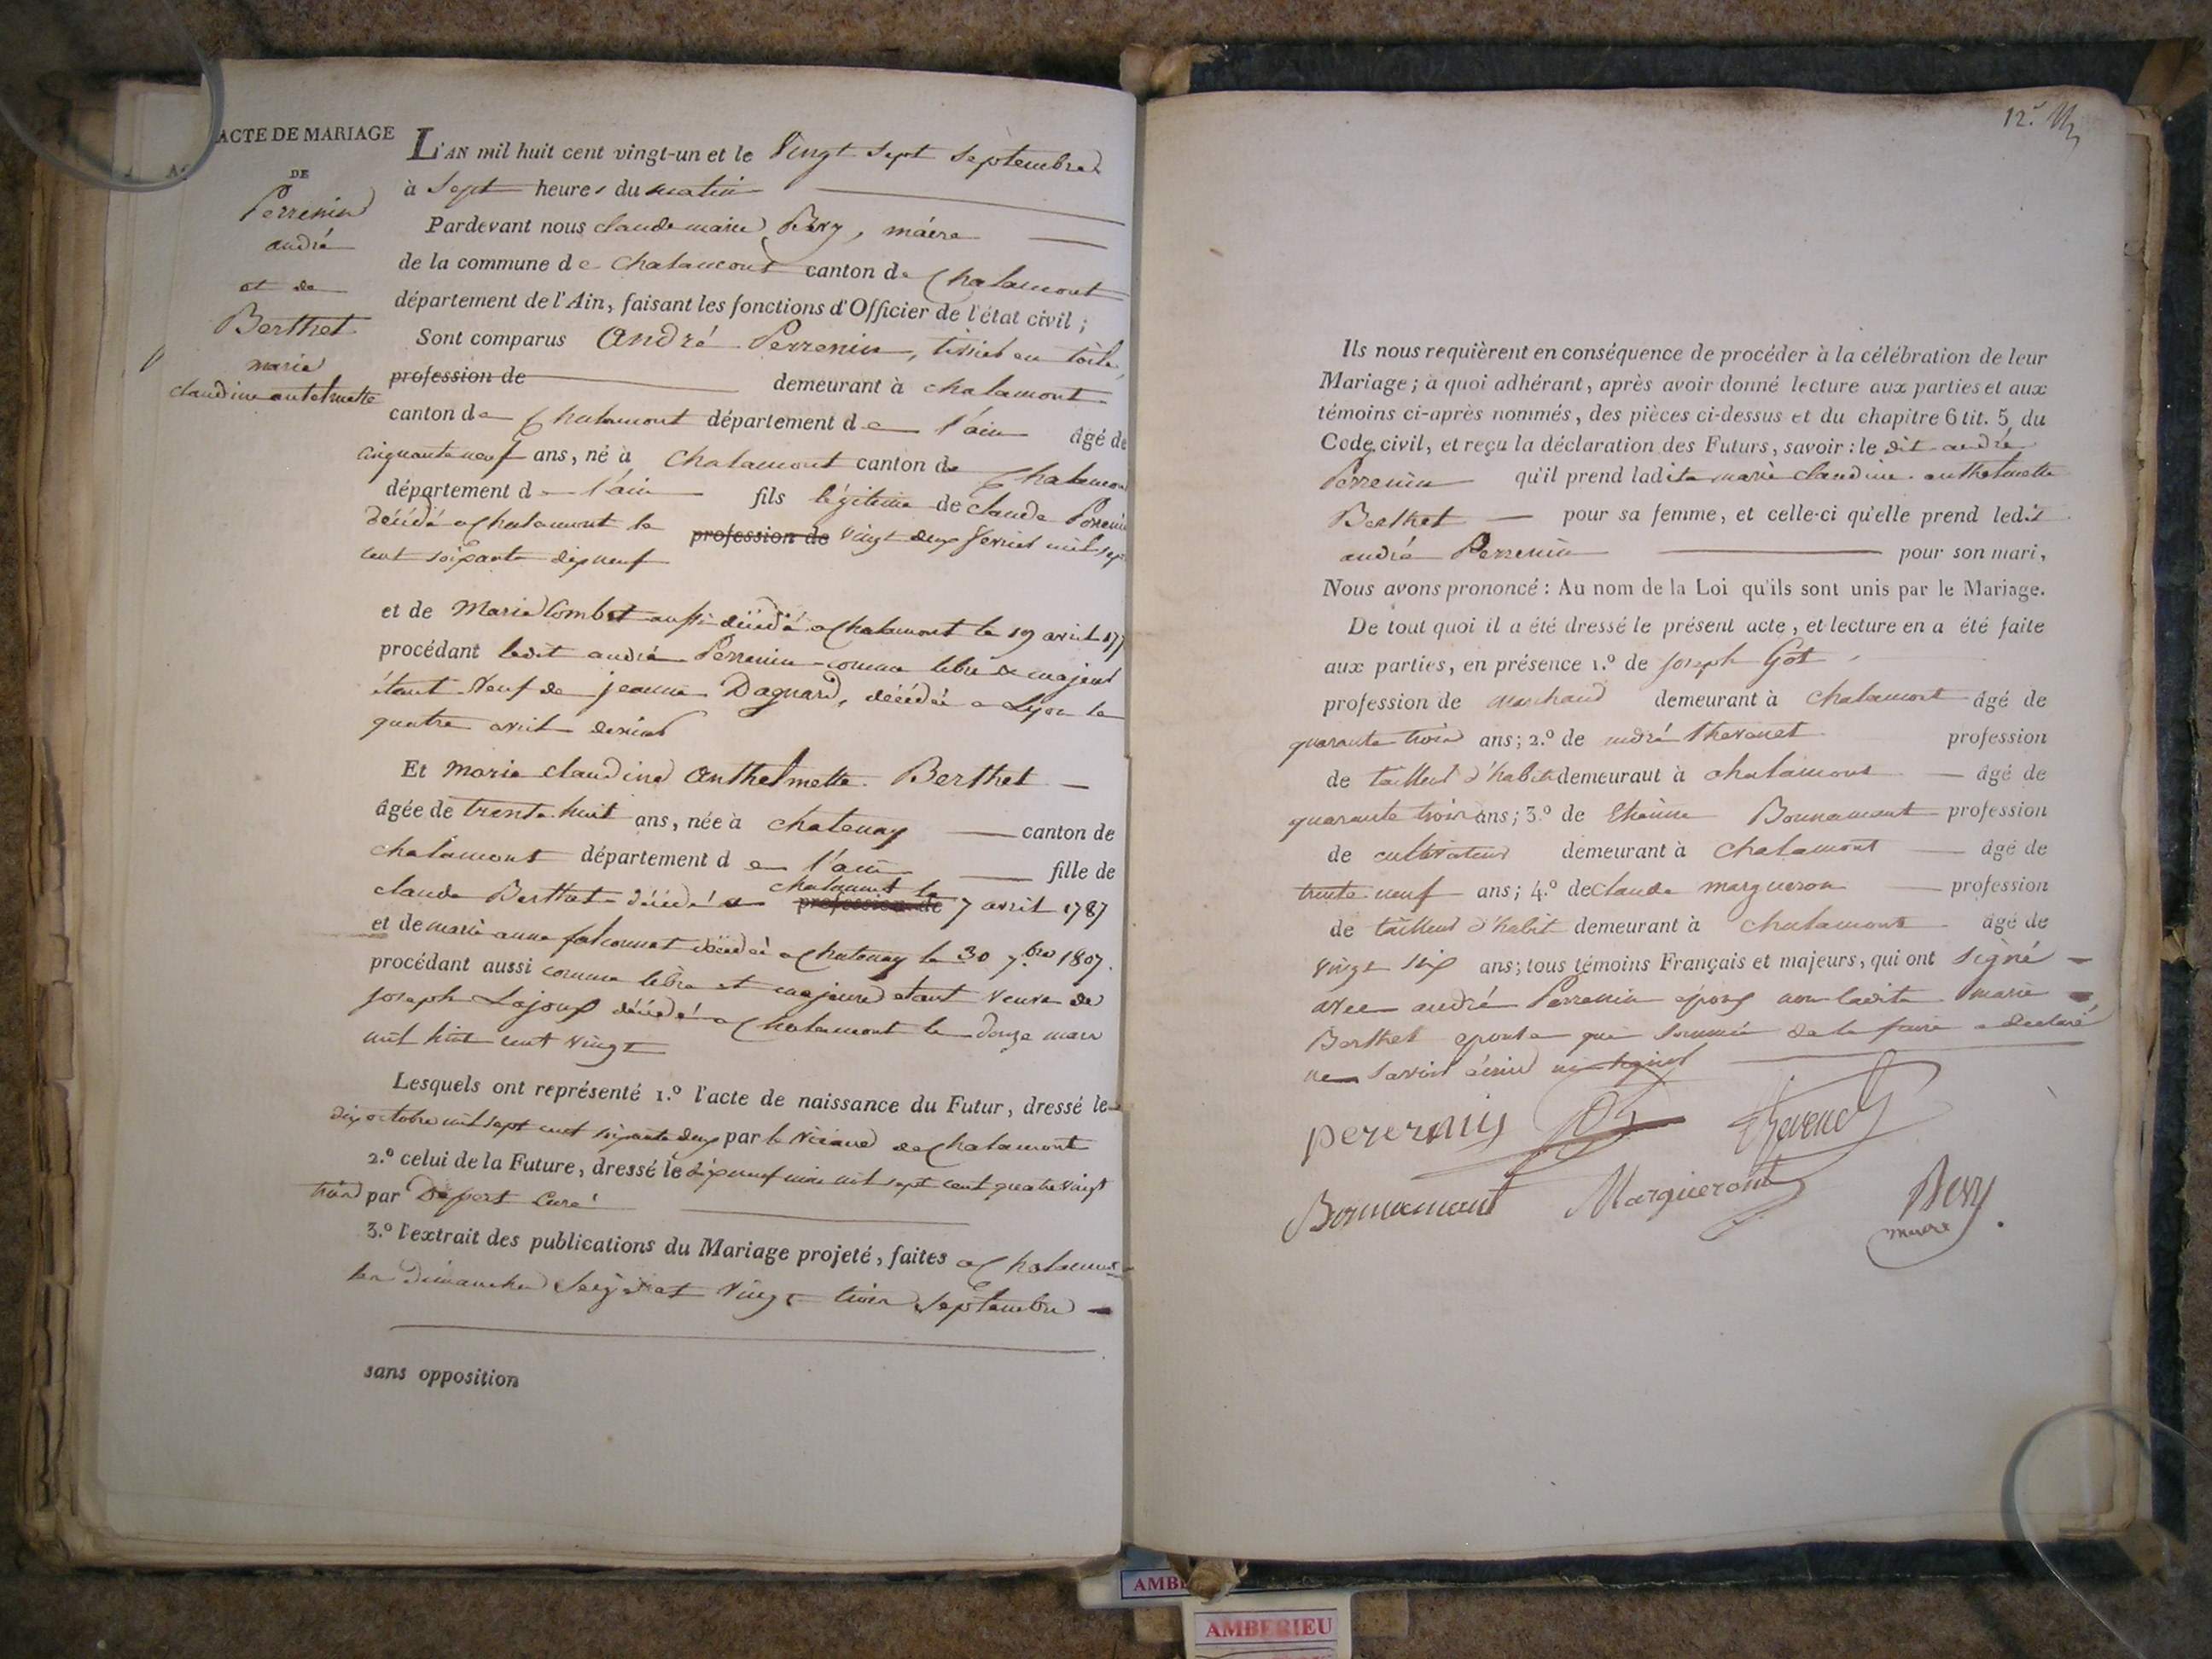 ACTE DE MARIAGE
DE
Perrenin
andré
et de
Berthet
marie
claudine antelmette
L'AN mil huit cent vingt-un et le Vingt sept septembre
à sept heures du matin
Pardevant nous claude marie Bery, maire
de la commune de chalamont canton de Chalamont
département de l'Ain, faisant les fonctions d'Officier de l'état civil ;
Sont comparus André Perrenin, tissier en toile,
profession de demeurant à chalamont
canton de Chalamont département de l'ain âgé de
cinquante neuf ans, né à Chalamont canton de Chalamont
département de l'ain fils légitime de claude Perrenin
décédé a Chalamont le profession de vingt deux fevrier mil sept
cent soixante dix neuf
et de Marie Combet aussi décédé a Chalamont le 19 avril 177
procédant ledit andré Perrenin comme libre & majeur
étant veuf de jeanne Dagnard, décédée a Lyon le
quatre avril dernier
Et Marie claudine Anthelmette Berthet
âgée de trente huit ans, née à chatenay canton de
chalamont département de l'ain fille de
claude Berthet décédé a chalamont le profession de 7 avril 1787
et de marie anne falconnet décédée a Chatenay le 30 7.bre 1807.
procédant aussi comme libre et majeure etant veuve de
joseph Lajoux décédé a Chalamont le douze mars
mil huit cent vingt
Lesquels ont représenté 1.º l'acte de naissance du Futur, dressé le
dix octobre mil sept cent soixante deux par le vicaire de Chalamont
2.º celui de la Future, dressé le dix neuf mai mil sept cent quatre vingt
trois par Depert Curé
3.º l'extrait des publications du Mariage projeté, faites a Chalamont
les dimanches seize et vingt trois septembre
sans opposition
12.
Ils nous requièrent en conséquence de procéder à la célébration de leur
Mariage ; à quoi adhérant, après avoir donné lecture aux parties et aux
témoins ci-après nommés, des pièces ci-dessus et du chapitre 6 tit. 5 du
Code civil, et reçu la déclaration des Futurs, savoir : le dit andré
Perrenin qu'il prend ladite marie claudine anthelmette
Berthet pour sa femme, et celle-ci qu'elle prend ledit
andré Perrenin pour son mari,
Nous avons prononcé : Au nom de la Loi qu'ils sont unis par le Mariage.
De tout quoi il a été dressé le présent acte, et lecture en a été faite
aux parties, en présence 1.º de joseph Got
profession de marchand demeurant à chalamont âgé de
quarante trois ans ; 2.º de andré thevenet profession
de tailleur d'habit demeurant à chalamont âgé de
quarante trois ans ; 3.º de Etienne Bonnamant profession
de cultivateur demeurant à chalamont âgé de
trente neuf ans ; 4.º de claude margueron profession
de tailleur d'habit demeurant à chalamont âgé de
vingt six ans ; tous témoins Français et majeurs, qui ont signé
avec andré Perrenin époux non ladite marie
Berthet epouse qui sommée de le faire a declaré
ne savoir écrire ni signer
pererniy Got Thevenet
Bonnamant Margueront Bery
maire
AMBERIEU